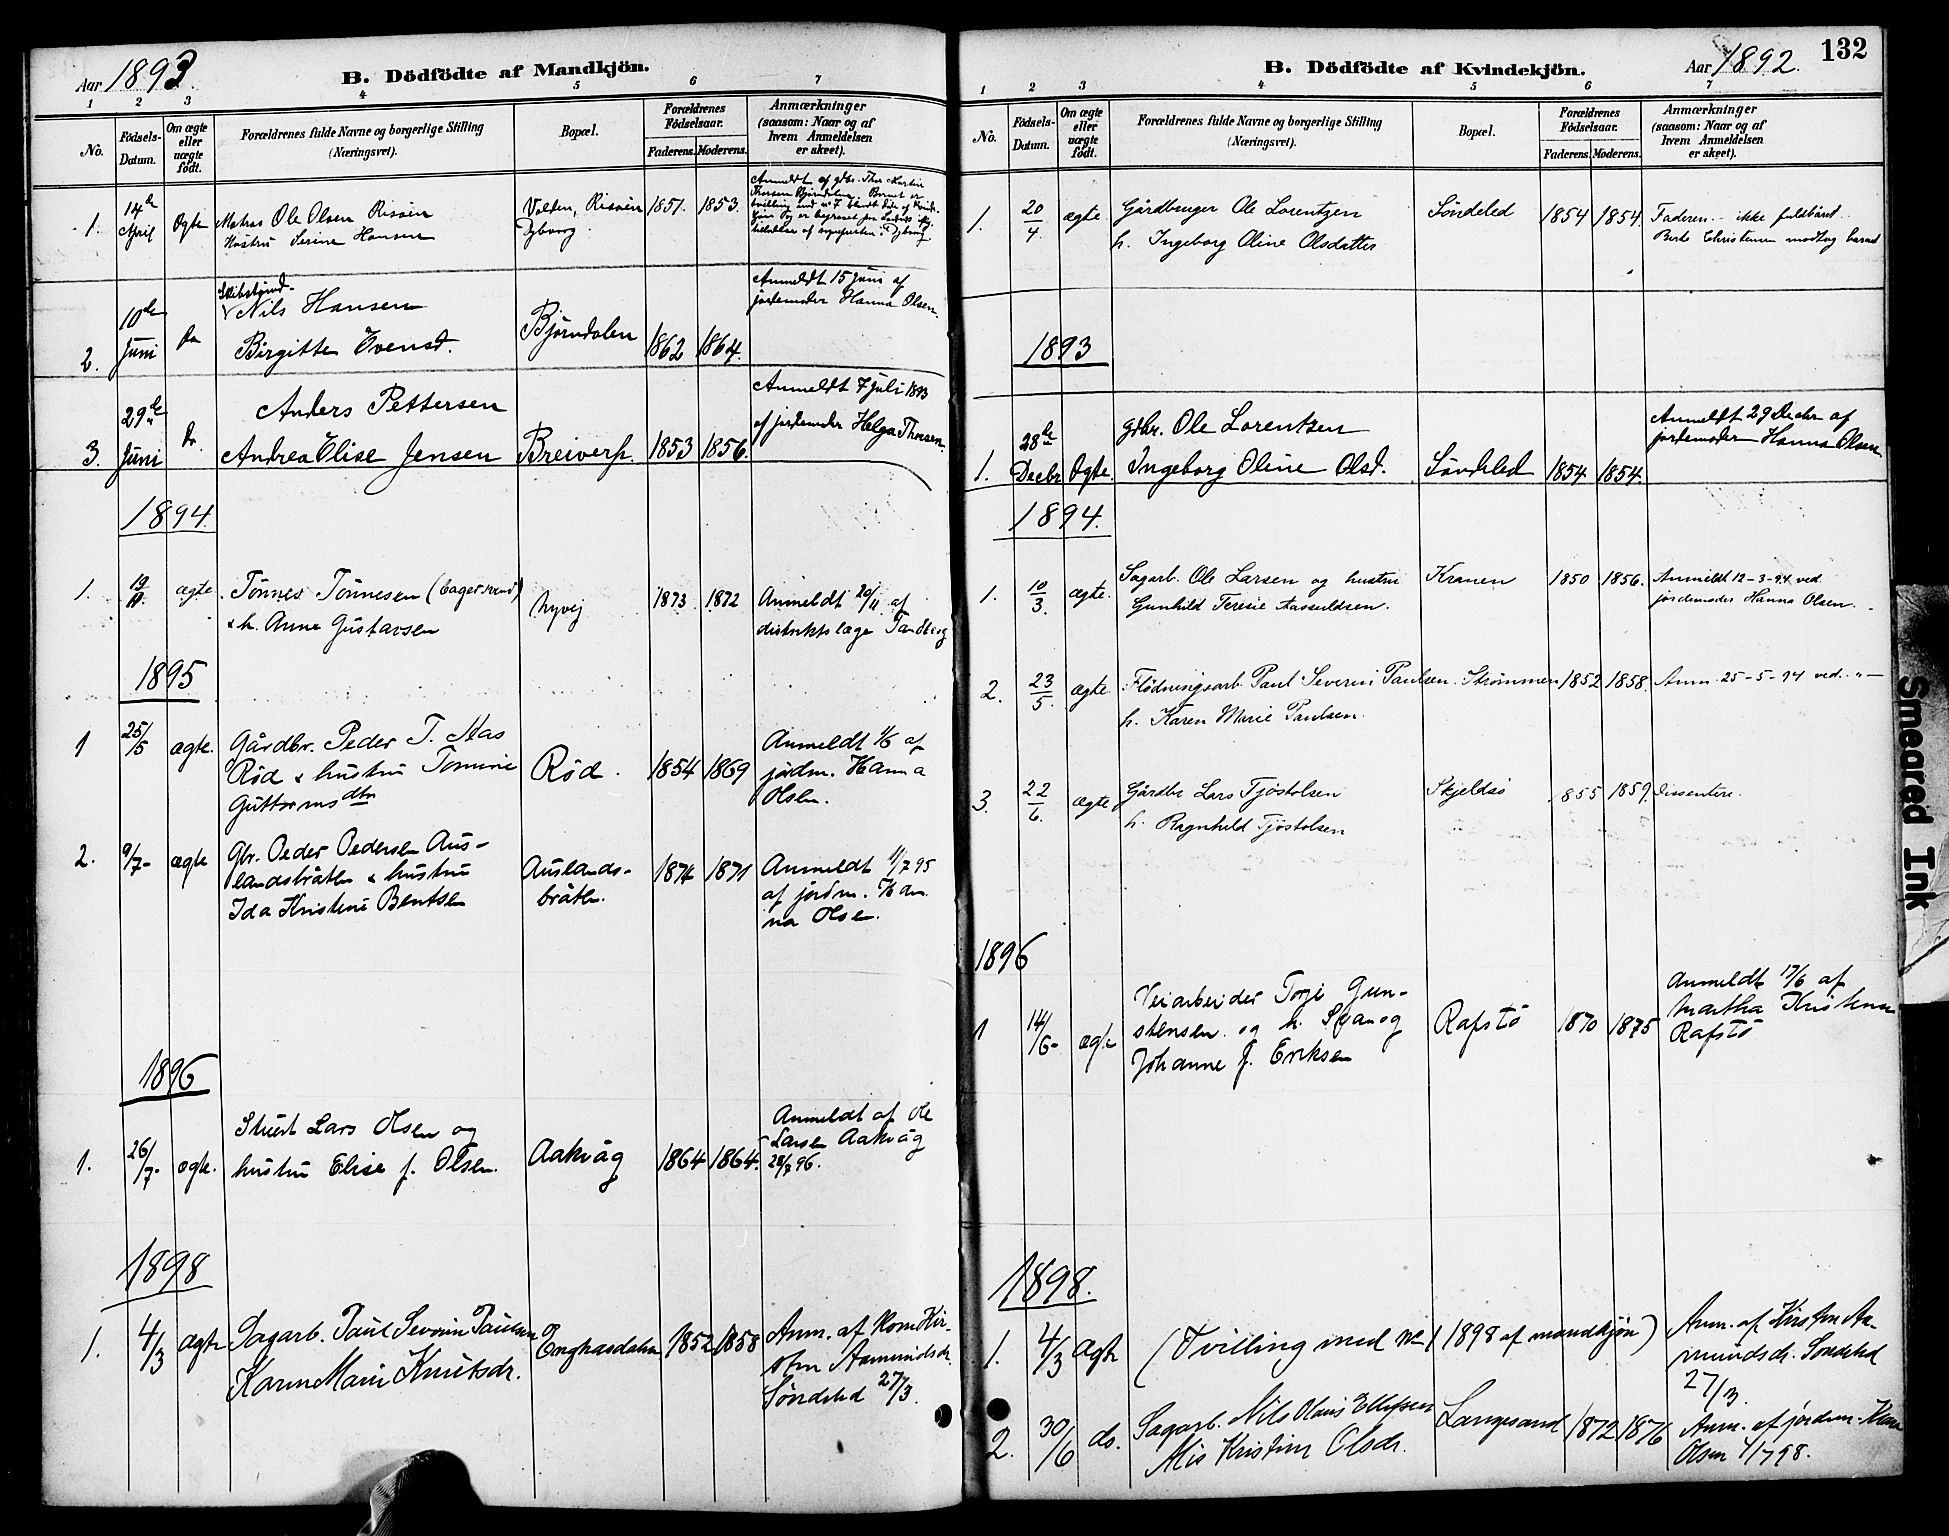 Aar 1893.
B. Dödfödte af Mandkjön.
1 2 3 4 5 6 7
No.
Födsels-Datum.
Om ægte eller uægte født.
Forældrenes fulde Navne og borgerlige Stilling
(Næringsvei).
Bopæl.
Forældrenes Födselsaar.
Faderens. Moderens.
Anmærkninger
(saasom: Naar og af
hvem Anmeldelsen
er skeet).
1. 14de April Ogte Matros Ole Olsen Risøen
Hustru Serine Hansen
Volden, Risøen
Dybvaag.
1851. 1853.
Anmeldt af gbr. Thor Martin
Thorsen Bjørndalen. Barnet er
2. 10de Juni Do
Skibstømd.
Nils Hansen
Birgitte Evensd.
Bjørndalen 1862 1864.
Anmeldt 15 Juni af
jordemoder Hanna Olsen.
3. 29de Juni Do.
Anders Pettersen
Andrea Elise Jensen
Breiverh. 1853 1856.
Anmeldt 7 Juli 1893
af jordemoder Helga Thorsen.
1894.
1. 19/11. ægte. Tønnes Tønnesen (bagersvend)
& h. Anne Gustavsen
Nyvej 1873 1872
Anmeldt 20/11 af
distriktslæge Tandberg
1895
1 25/5 ægte. Gårdbr. Peder T. Aas
Rød & hustru Tomine
Guttormsdtr
Rød. 1854 1869
Anmeldt 1/6 af
jordm. Hanna
Olsen.
2. 9/7- ægte Gbr. Peder Pedersen Aus-
landsbråten & hustru
Ida Kristine Bentsen
Auslands-
bråten. 1874 1871
Anmeldt 11/7 95
af jordm. Han-
na Olsen.
1896
1. 26/7- ægte.
Stuert Lars Olsen og
hustru Elise f. Olsen.
Aakvåg 1864 1864.
Anmeldt af Ole
Larsen Aakvåg
28/7 96.
1898
1. 4/3 ægte Sagarb. Paul Severin Paulsen
Karen Marie Knutsdr.
Enghavdalen 1852 1858
Anm. af Kone Kir-
sten Aamundsdr.
Søndeled 27/3.
B. Dödfödte af Kvindekjön.
Aar 1892.
132
1 2 3 4 5 6 7
No.
Födsels-Datum.
Om ægte eller uægte født.
Forældrenes fulde Navne og borgerlige Stilling
(Næringsvei).
Bopæl.
Forældrenes Födselsaar.
Faderens. Moderens.
Anmærkninger
(saasom: Naar og af
hvem Anmeldelsen
er skeet).
1. 20/4. ægte Gårdbruger Ole Lorentzen
h. Ingeborg Oline Olsdatter
Søndeled 1854 1854.
Faderen. - ikke fuldbåret.
Berte Christensen modtog barnet
1893
1. 28de Decbr Ogte.
gdbr. Ole Lorentsen
Ingeborg Oline Olsd.
Søndeled 1854 1854.
Anmeldt 29 Decbr af
jordemoder Hanna Olsen
1894.
1. 10/3. ægte. Sagarb. Ole Larsen og hustru
Gunhild Teresie Aasuldsen.
Kranen 1850 1856.
Anmeldt 12-3-94 ved
jordemoder Hanna Olsen.
2. 23/5. ægte. Flødningsarb. Paul Severin Paulsen.
h. Karen Marie Paulsen.
Strømmen 1852 1858.
Anm. 25-5-94 ved. -"-
3. 22/6. ægte Gårdbr Lars Tjøstolsen
h. Ragnhild Tjøstolsen
Skjeldsø 1855 1859.
Dissentere.
1896
1 14/6- ægte
Veiarbeider Torje Gun-
stensen og h. Svanog
Johanne f. Eriksen
Rafstø 1870 1875
Anmeldt 17/6 af
Martha Kristensen
Rafstø
1898.
1. 4/3 ægte (Tvilling med No 1 1898 af mandkjøn)
Anm. af Kirsten Aa-
mundsdr. Søndeled
27/3.
2. 30/6 do. Sagarb. Nils Olaus Ellefsen
Mis Kristine Olsdr.
Langesand 1872 1876
Anm. af jordm. Hana
Olsen 1/7 98.
Smeared Ink